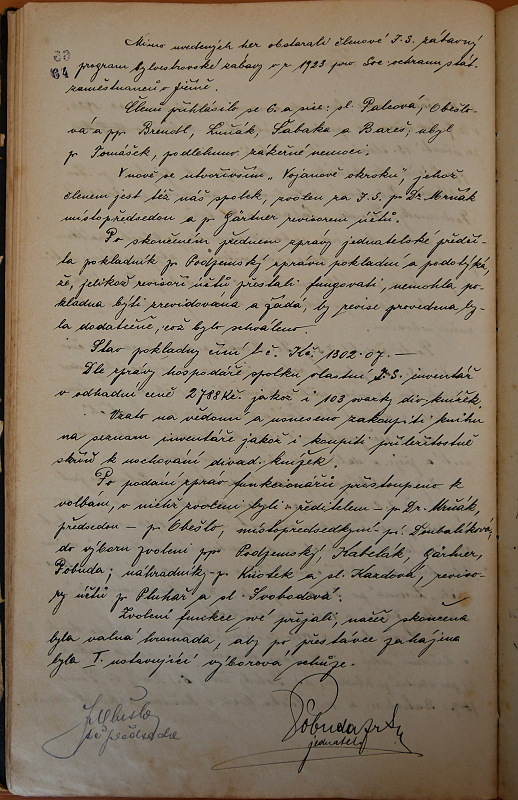 53
84
Mimo uvedených her obstarali členové J. S. zábavný
program sylvestrovské zabavy v r. 1923 pro Svc. ochranu stát.
zaměstnanců v Jičíně.
Členů přihlásilo se 6. a sice: sl. Palcová, Obešlo-
vá a pp. Brendl, Zmák, Šabaka a Bareš; ubyl
p. Tomášek, podlehnuv zákeřné nemoci.
V nově se utvořivším „Vojanově okrsku“, jehož
členem jest též náš spolek, zvolen za J. S. p. Dr. Mrňák
místopředsedou a p. Gärtner revisorem účtů.
Po skončeném přednesu zprávy jednatelské předčí-
tá pokladník p. Podzemský zprávu pokladní a podotýká,
že, jelikož revisoři účtů přestali fungovati, nemohla po-
kladna býti zrevidována a žádá, by revise provedena by-
la dodatečně, což bylo schváleno.
Stav pokladny činí b. č. Kč. 1302·07.—
Dle zprávy hospodáře spolku vlastní J. S. inventář
v odhadní ceně 2788 Kč. jakož i 103 svazky div. knížek.
Vzato na vědomí a usneseno zakoupiti knihu
na seznam inventáře jakož i koupiti příležitostně
skříň k uschování divad. knížek.
Po podání zpráv funkcionářů přistoupeno k
volbám, v nichž zvoleni byli: ředitelem – p. Dr. Mrňák,
předsedou – p. Obešlo, místopředsedkyní – pí. Doubalíková,
do výboru zvoleni pp. Podzemský, Kabelák, Gärtner,
Pobuda; náhradníky – p. Knotek a sl. Kazdová, reviso-
ry účtů p. Pluhař a sl. Svobodová.
Zvolení funkce své přijali, načež skončena
byla valná hromada, aby po přestávce zahájena
byla I. ustavující výborová schůze.
předseda
Pobuda
jednatel